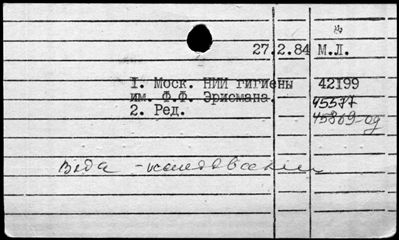 27.2.84 М.Л.
1. Моск. НИИ гигиены 42199
им. Ф.Ф. Эрисмана. 45577
2. Ред. 45869-од
Вода - исследование